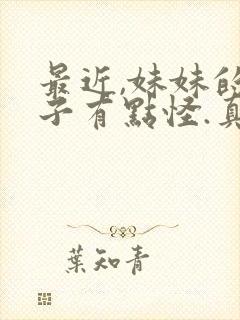 最近,妹妹的
子有點怪.真
葉知青